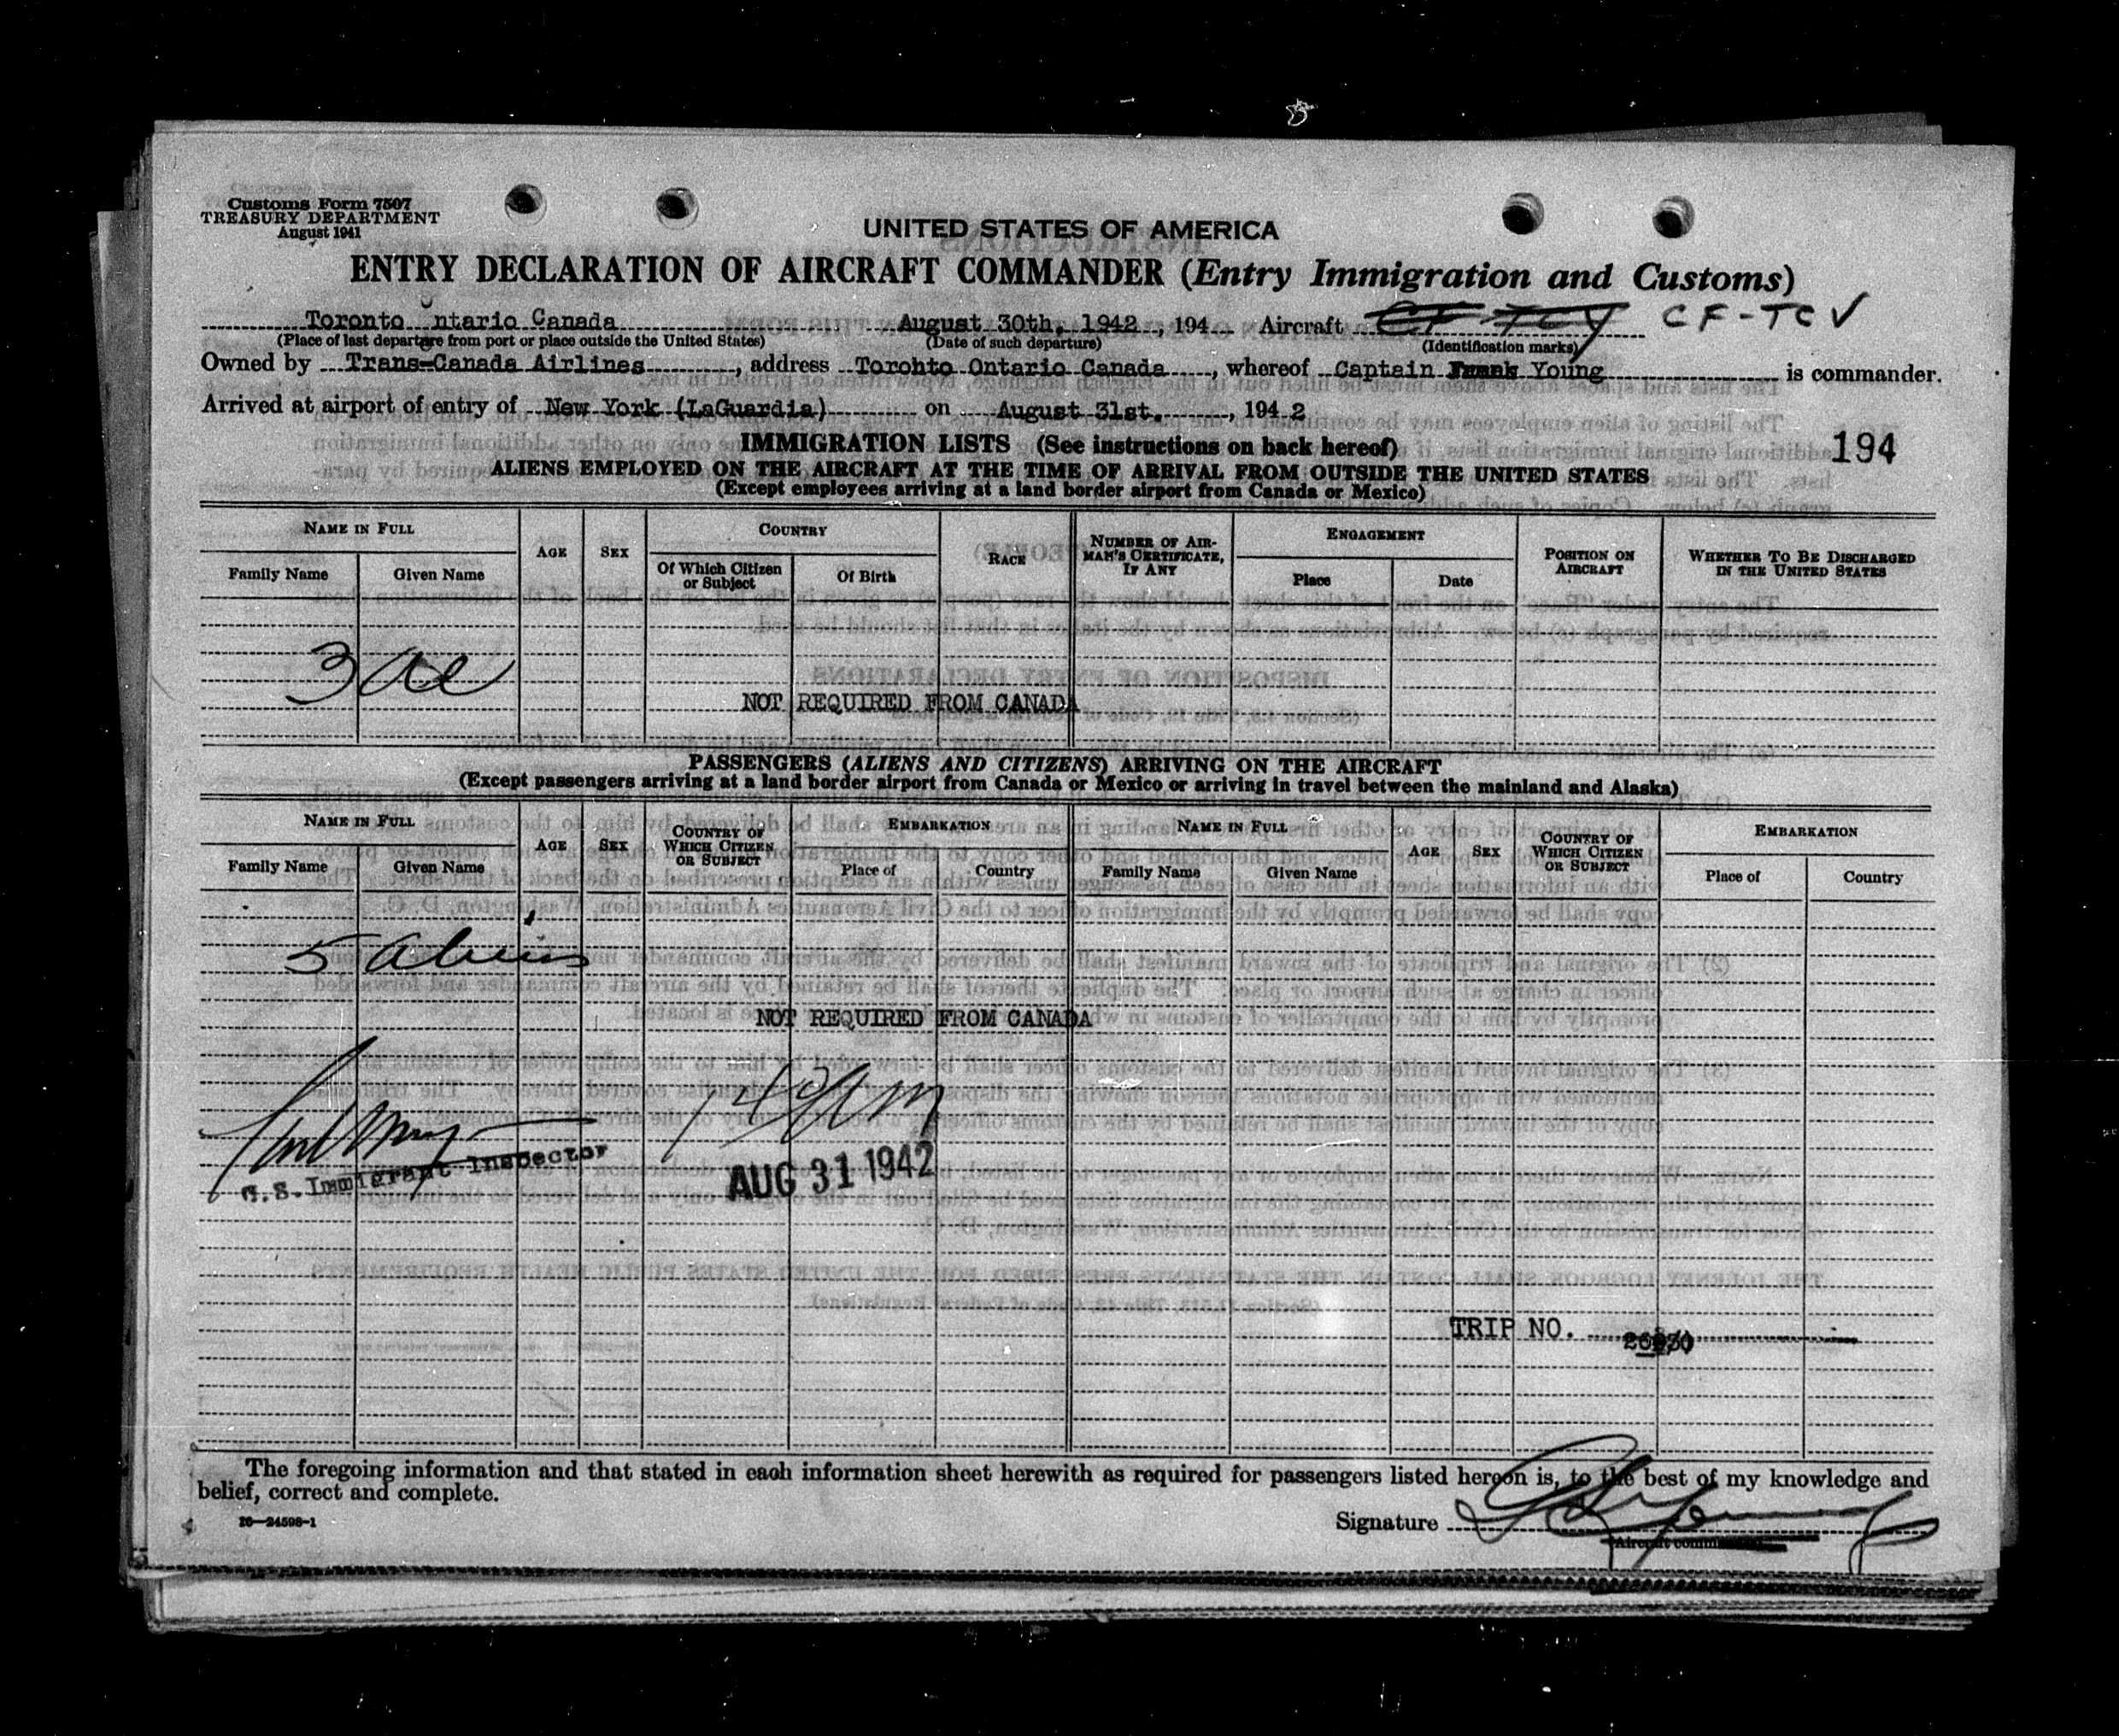 Customs Form 7507
TREASURY DEPARTMENT
August 1941
UNITED STATES OF AMERICA
ENTRY DECLARATION OF AIRCRAFT COMMANDER (Entry Immigration and Customs)
Toronto Ontario Canada August 30th, 1942, 194 Aircraft CF-TCY CF-TCV
(Place of last departure from port or place outside the United States) (Date of such departure) (Identification marks)
Owned by Trans-Canada Airlines, address Toronto Ontario Canada, whereof Captain Young is commander.
Arrived at airport of entry of New York (LaGuardia) on August 31st., 1942
IMMIGRATION LISTS (See instructions on back hereof)
194
ALIENS EMPLOYED ON THE AIRCRAFT AT THE TIME OF ARRIVAL FROM OUTSIDE THE UNITED STATES
(Except employees arriving at a land border airport from Canada or Mexico)
NAME IN FULL AGE SEX COUNTRY RACE NUMBER OF AIRMAN'S CERTIFICATE, IF ANY ENGAGEMENT POSITION ON AIRCRAFT WHETHER TO BE DISCHARGED IN THE UNITED STATES
Family Name Given Name Of Which Citizen or Subject Of Birth Place Date
3 ae
NOT REQUIRED FROM CANADA
PASSENGERS (ALIENS AND CITIZENS) ARRIVING ON THE AIRCRAFT
(Except passengers arriving at a land border airport from Canada or Mexico or arriving in travel between the mainland and Alaska)
NAME IN FULL AGE SEX COUNTRY OF WHICH CITIZEN OR SUBJECT EMBARKATION NAME IN FULL AGE SEX COUNTRY OF WHICH CITIZEN OR SUBJECT EMBARKATION
Family Name Given Name Place of Country Family Name Given Name Place of Country
5 aliens
NOT REQUIRED FROM CANADA
U.S. Immigrant Inspector
AUG 31 1942
TRIP NO.
The foregoing information and that stated in each information sheet herewith as required for passengers listed hereon is, to the best of my knowledge and
belief, correct and complete.
16—24598-1
Signature